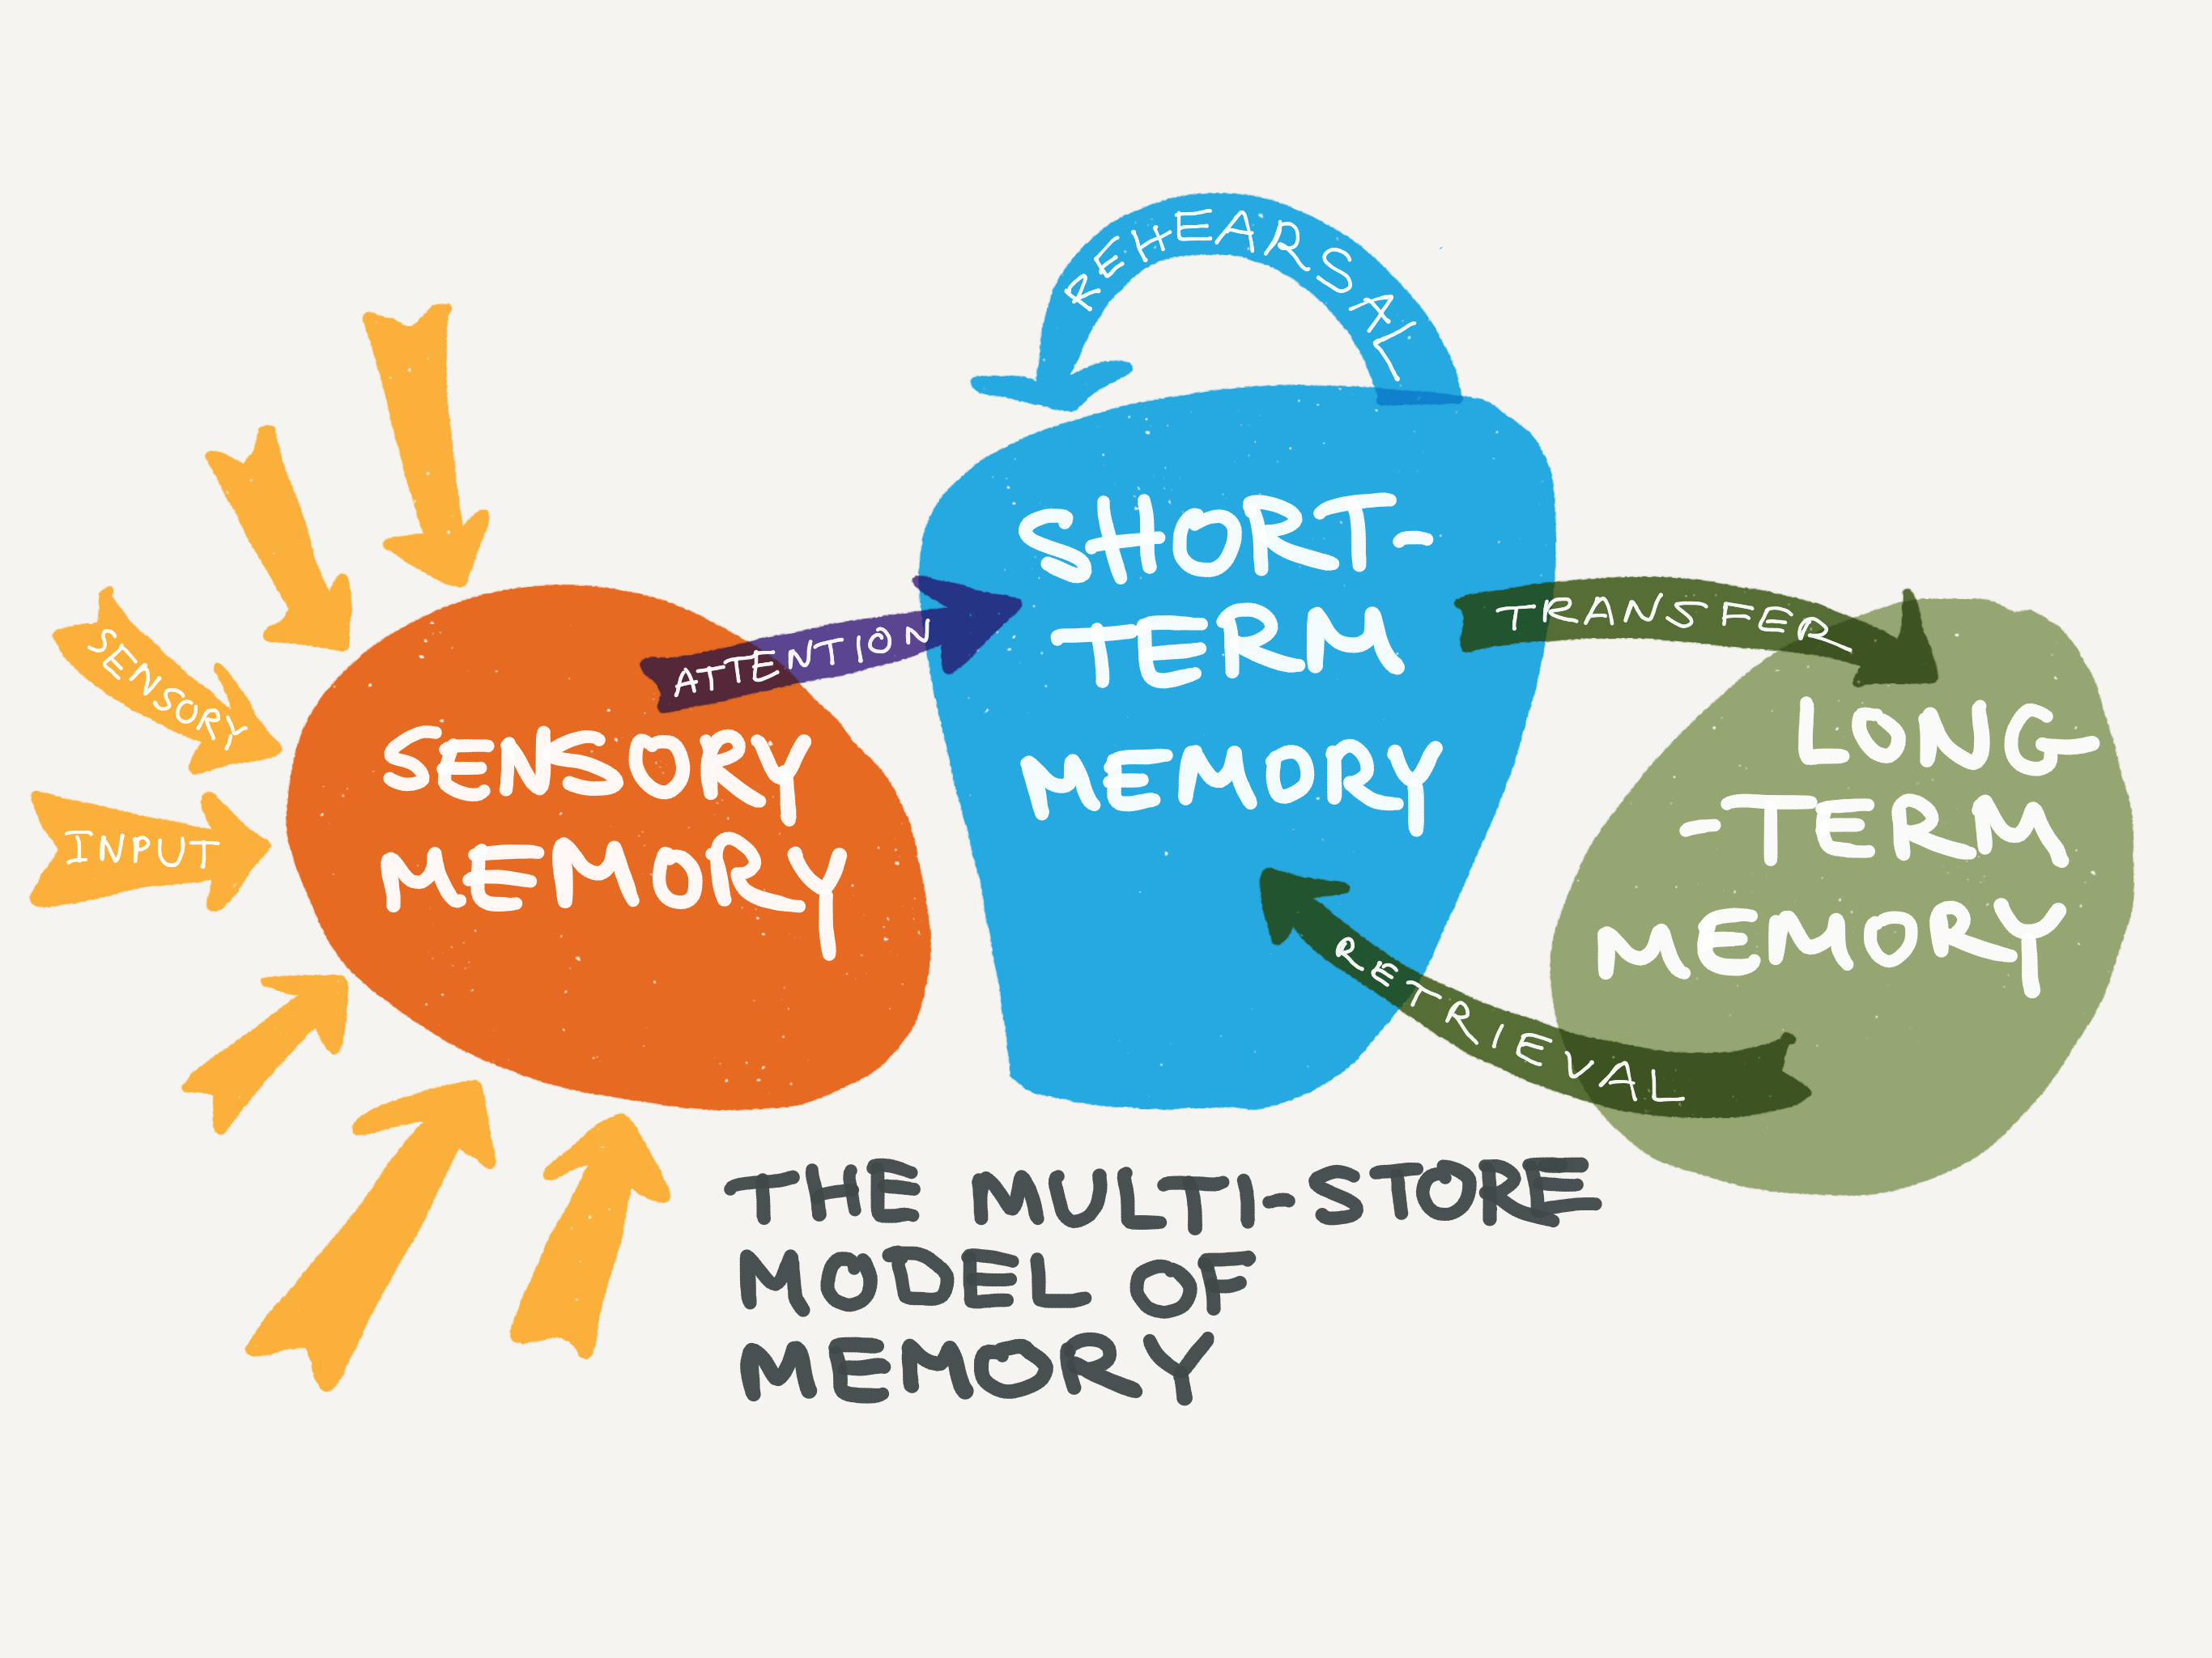 REHEARSAL
SENSORY
INPUT
ATTENTION
SENSORY
MEMORY
SHORT-
TERM
MEMORY
TRANSFER
LONG
-TERM
MEMORY
RETRIEVAL
THE MULTI-STORE
MODEL OF
MEMORY